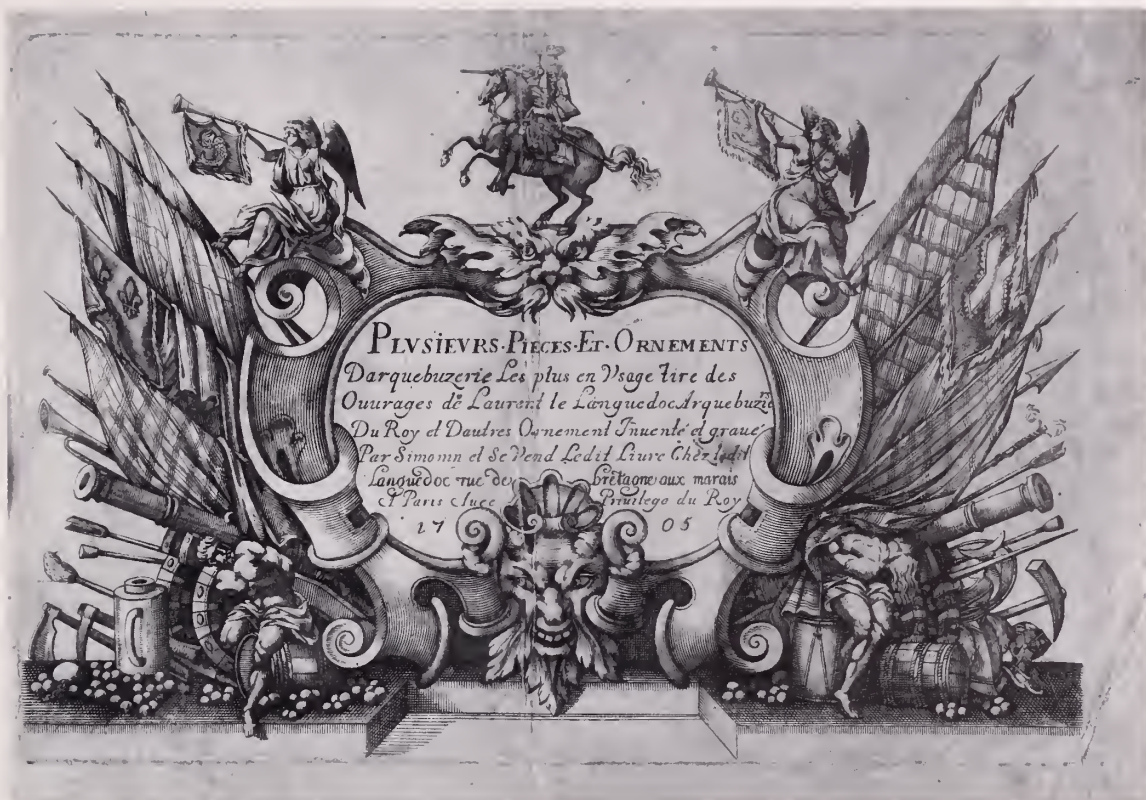 PLVSIEVRS·PIECES·ET·ORNEMENTS
Darquebuzerie Les plus en Vsage tire des
Ouurages de Laurent le Languedoc Arquebuzie
Du Roy et Dautres Ornement Inuenté et graué
Par Simonin et Se Vend Ledit Liure Chez ledit
Languedoc rue de bretagne aux marais
A Paris Auec Priuilego du Roy
17 05